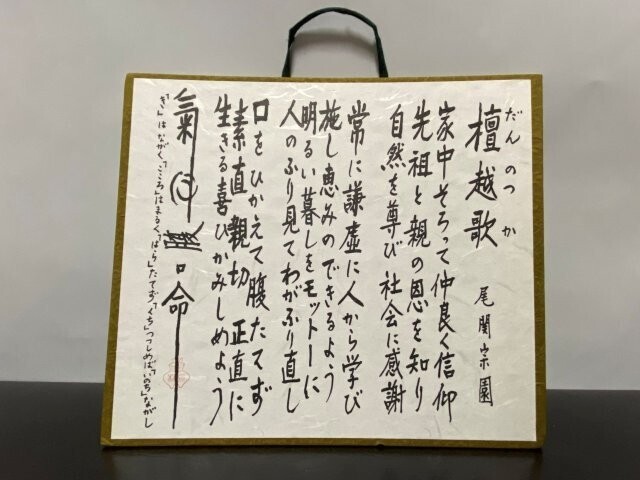 だんのつか
檀越歌
尾関宗園
家中そろって仲良く信仰
先祖と親の恩を知り
自然を尊び社会に感謝
常に謙虚に人から学び
施し恵みのできるよう
明るい暮しをモットーに
人のふり見てわがふり直し
口をひかえて腹たてず
素直親切正直に
生きる喜びかみしめよう
氣心腹口命
「き」はながく「こころ」はまるく「はら」たてず「くち」つつしめば「いのち」ながし